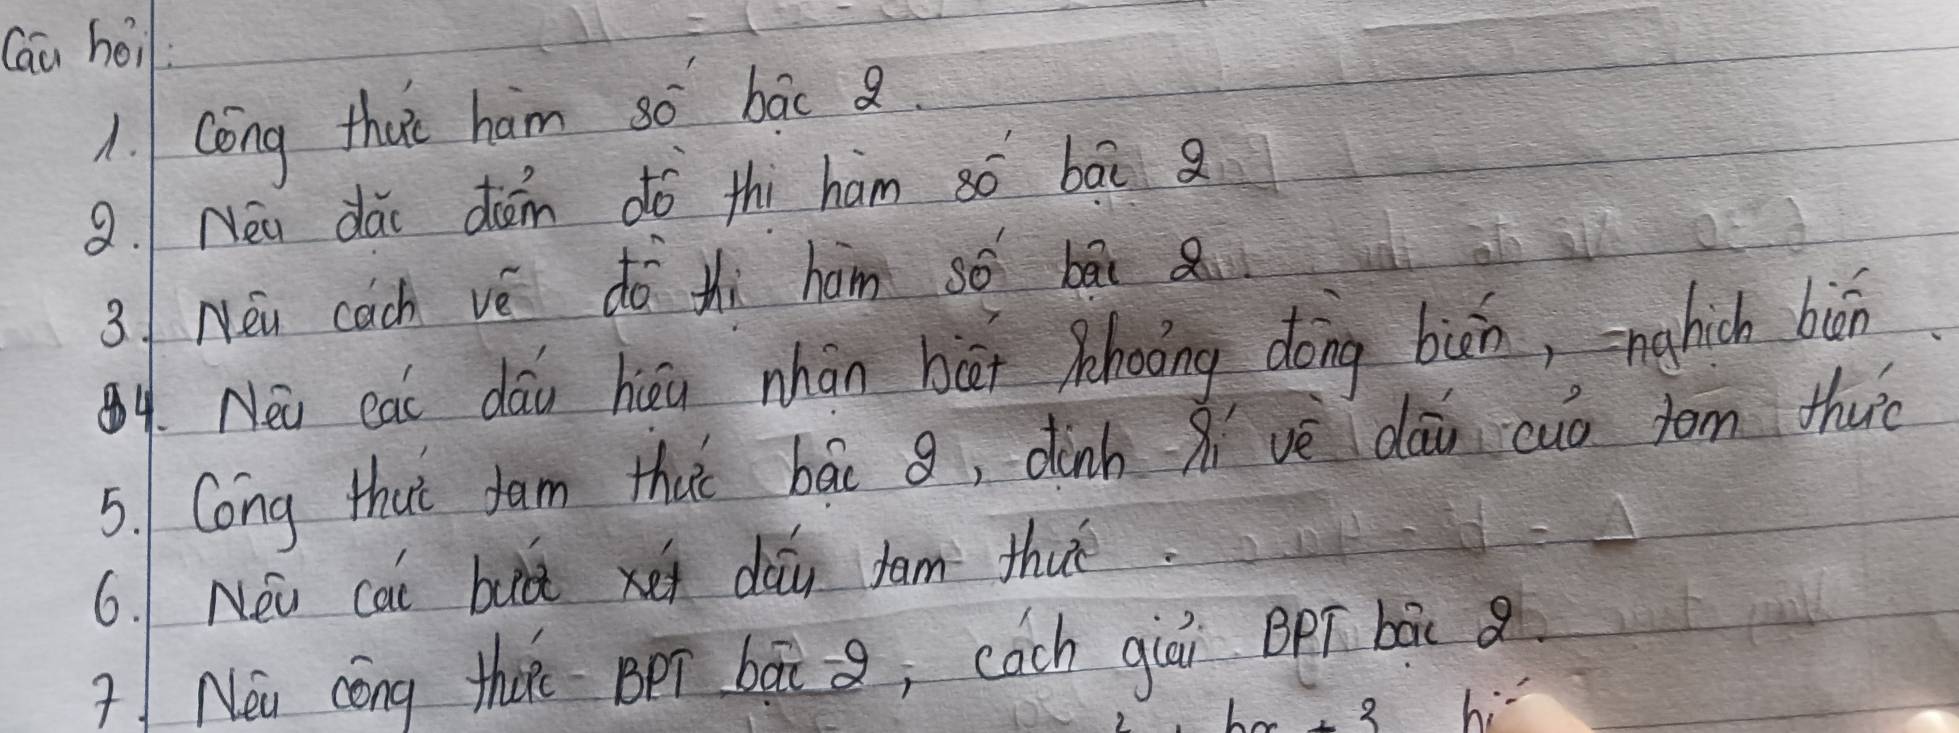 Câu hỏi:
1. Công thức hàm số bậc 2.
2. Nêu đặc điểm đồ thị hàm số bậc 2
3. Nêu cách vẽ đồ thị hàm số bậc 2.
4. Nêu các dấu hiệu nhận biết khoảng đồng biến, nghịch biến.
5. Công thức tam thức bậc 2, định lí về dấu của tam thức
6. Nêu các bước xét dấu tam thức.
7. Nêu công thức BPT bậc 2, cách giải BPT bậc 2.